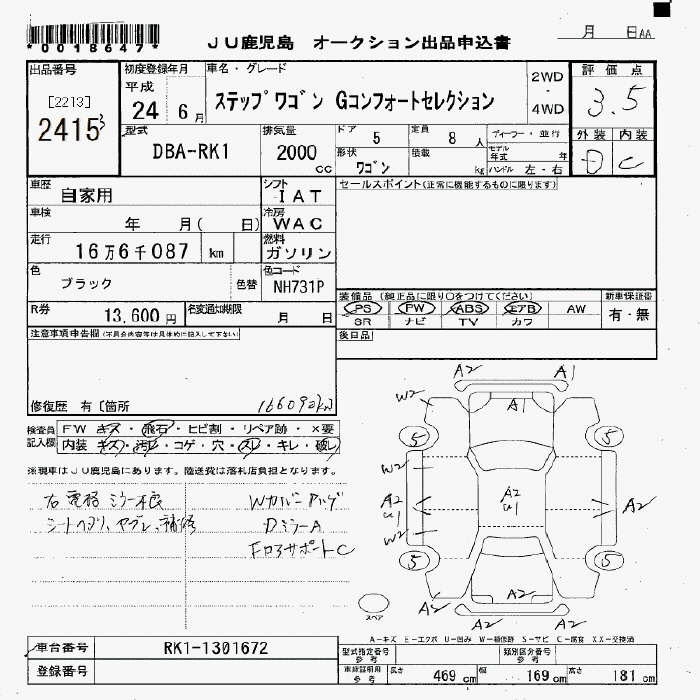 *0018647*
JU鹿児島 オークション出品申込書
月 日AA
出品番号
[2213]
2415
初度登録年月
平成
24 6月
車名・グレード
ステップワゴン Gコンフォートセレクション
2WD
・
4WD
評価点
3.5
外装 内装
D C
型式
DBA-RK1
排気量
2000 cc
ドア 5
定員 8人
ディーラー・並行
形状 ワゴン
積載 kg
モデル年式 年
ハンドル 左・右
車歴 自家用
シフト IAT
セールスポイント(正常に機能するものに限ります)
車検 年 月( 日)
冷房 WAC
走行 16万6千087 km
燃料 ガソリン
色 ブラック 色替
色コード NH731P
R券 13,600円
名変通知期限 月 日
装備品 (純正品に限り○をつけてください)
PS PW ABS エアB AW
SR ナビ TV カワ
新車保証書
有・無
注意事項申告欄(不具合内容等は具体的に記入して下さい)
後日品
修復歴 有[箇所
166092km
検査員記入欄
FW キズ・飛石・ヒビ割・リペア跡・×要
内装 キズ・汚レ・コゲ・穴・スレ・キレ・破レ
※現車はJU鹿児島にあります。陸送費は落札店負担となります。
右電格ミラー不良
シートヘタリ、ヤブレ、補修
Wカバーアゲ
DミラーA
FロアサポートC
A2 A1
W2 A1
5 5
W2
A2 U1
A2 U1
A2
W2
5 5
A2 A2 A2 A2
スペア
A-キズ E-エクボ U-凹み W-補修跡 S-サビ C-腐食 XX-交換済
車台番号 RK1-1301672
登録番号
型式指定番号 参考
類別区分番号 参考
車検証明用 参考
長さ 469 cm
幅 169 cm
高さ 181 cm